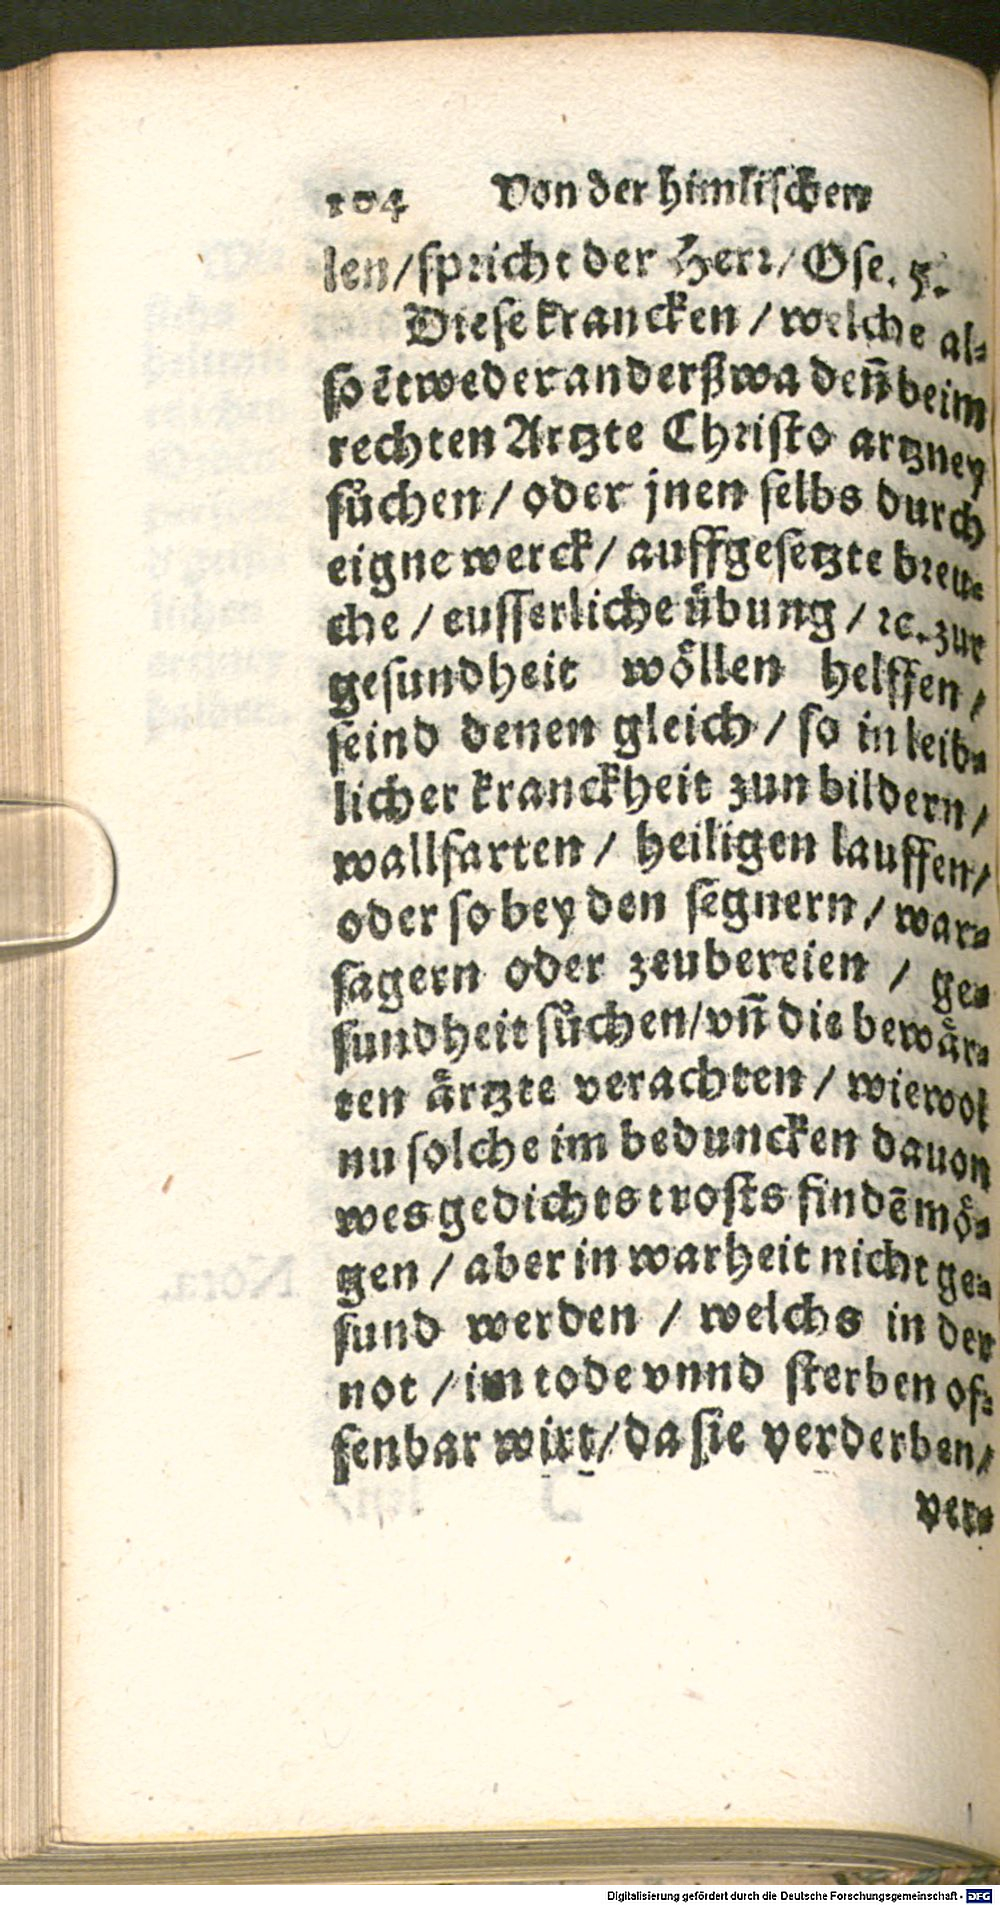 104 Von der himlischen
len/spricht der Herr/Ose. 5.
Diese krancken/welche al⸗
so ētweder anderßwa deñ beim
rechten Artzte Christo artzney
sůchen/oder jnen selbs durch
eigne werck/auffgesetzte breu⸗
che/eusserliche übung/ꝛc. zur
gesundheit wöllen helffen/
seind denen gleich/so in leib⸗
licher kranckheit zun bildern/
wallfarten/heiligen lauffen/
oder so bey den segnern/war⸗
sagern oder zeubereien/ge⸗
sundheit sůchen/vñ die bewår⸗
ten årtzte verachten/wiewol
nu solche im beduncken dauon
wes gedichts trosts findē mö⸗
gen/aber in warheit nicht ge⸗
sund werden/welchs in der
not/im tode vnnd sterben of⸗
fenbar wirt/da sie verderben/
ver⸗
Nota.
Digitalisierung gefördert durch die Deutsche Forschungsgemeinschaft - DFG